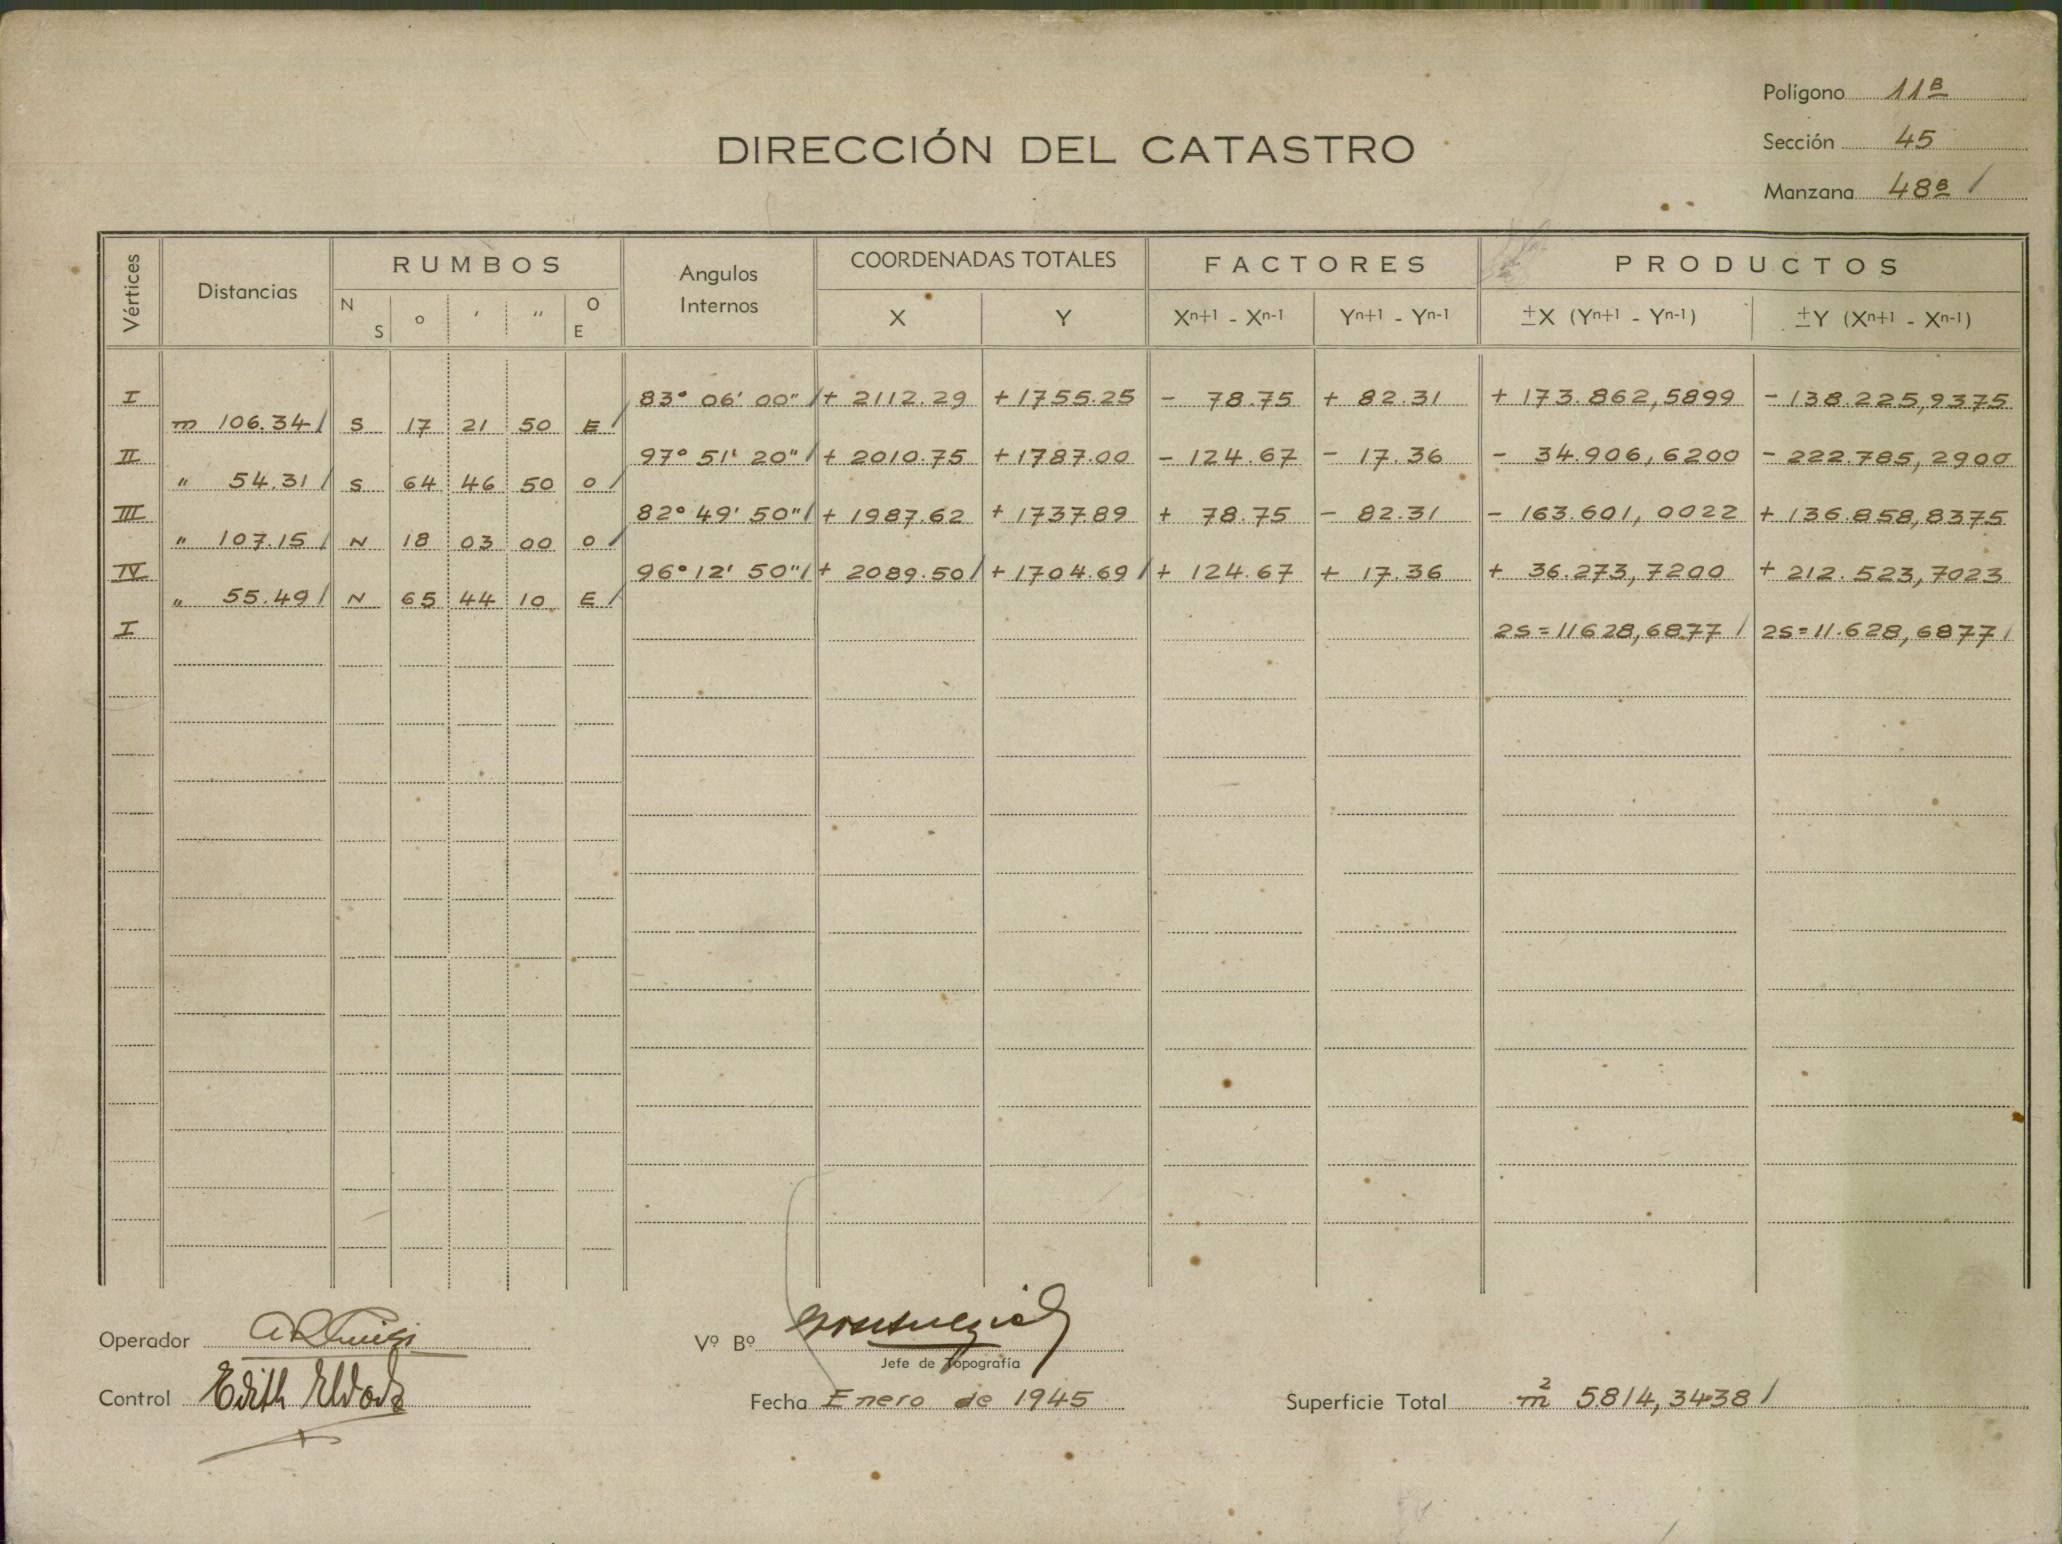 Polígono 11B
Sección 45
Manzana 48B /
DIRECCIÓN DEL CATASTRO
Vértices Distancias RUMBOS Angulos Internos COORDENADAS TOTALES FACTORES PRODUCTOS
N S o ' " O E X Y Xn+1 - Xn-1 Yn+1 - Yn-1 ±X (Yn+1 - Yn-1) ±Y (Xn+1 - Xn-1)
I 83° 06' 00" / + 2112.29 + 1755.25 - 78.75 + 82.31 + 173.862,5899 - 138.225,9375
m 106.34 / S 17 21 50 E /
II 97° 51' 20" / + 2010.75 + 1787.00 - 124.67 - 17.36 - 34.906,6200 - 222.785,2900
" 54.31 / S 64 46 50 O /
III 82° 49' 50" / + 1987.62 + 1737.89 + 78.75 - 82.31 - 163.601,0022 + 136.858,8375
" 107.15 / N 18 03 00 O /
IV 96° 12' 50" / + 2089.50 / + 1704.69 / + 124.67 + 17.36 + 36.273,7200 + 212.523,7023
" 55.49 / N 65 44 10 E /
I 2S = 11628,6877 / 2S = 11.628,6877 /
Operador
Vº Bº
Jefe de Topografía
Control Edith
Fecha Enero de 1945
Superficie Total m2 5814,3438 /